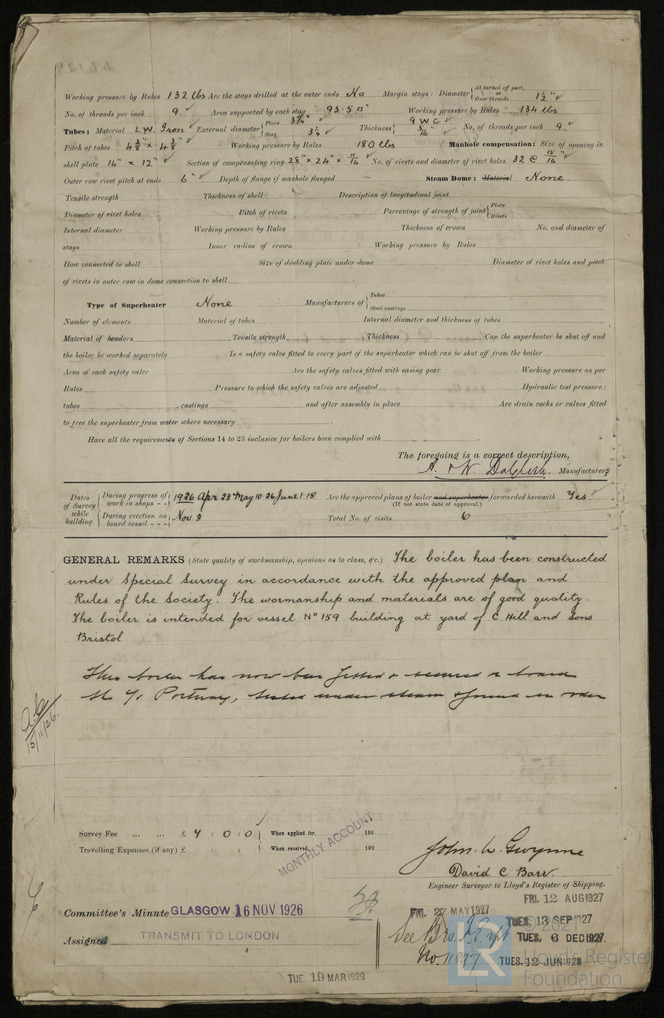 Working pressure by Rules 132 lbs Are the stays drilled at the outer ends No Margin stays: Diameter { At turned off part, or Over threads 1½" ✓
No. of threads per inch 9 ✓ Area supported by each stay 93.5 □" Working pressure by Rules 134 lbs
Tubes: Material L.W. Iron ✓ External diameter { Plain 3¼" Stay 3¼ ✓ Thickness { 9 W G ✓ 5/16" No. of threads per inch 9. ✓
Pitch of tubes 4⅜" × 4⅜" ✓ Working pressure by Rules 180 lbs Manhole compensation: Size of opening in
shell plate 16" × 12" ✓ Section of compensating ring 28" × 24" × 11/16 ✓ No. of rivets and diameter of rivet holes 32 @ 15/16" ✓
Outer row rivet pitch at ends 6" ✓ Depth of flange if manhole flanged – Steam Dome: Material None.
Tensile strength Thickness of shell Description of longitudinal joint
Diameter of rivet holes Pitch of rivets Percentage of strength of joint { Plate Rivets
Internal diameter Working pressure by Rules Thickness of crown No. and diameter of
stays Inner radius of crown Working pressure by Rules
How connected to shell Size of doubling plate under dome Diameter of rivet holes and pitch
of rivets in outer row in dome connection to shell
Type of Superheater None Manufacturers of { Tubes Steel castings
Number of elements Material of tubes Internal diameter and thickness of tubes
Material of headers Tensile strength Thickness Can the superheater be shut off and
the boiler be worked separately Is a safety valve fitted to every part of the superheater which can be shut off from the boiler
Area of each safety valve Are the safety valves fitted with easing gear Working pressure as per
Rules Pressure to which the safety valves are adjusted Hydraulic test pressure:
tubes , castings and after assembly in place Are drain cocks or valves fitted
to free the superheater from water where necessary
Have all the requirements of Sections 14 to 23 inclusive for boilers been complied with
The foregoing is a correct description,
A. & W. Dalglish. Manufacturers
Dates of Survey while building { During progress of work in shops - - 1926 Apr 23 May 10. 26 June 1. 15 Are the approved plans of boiler and superheater forwarded herewith Yes ✓
(If not state date of approval)
During erection on board vessel - - - Nov. 9 Total No. of visits 6
GENERAL REMARKS (State quality of workmanship, opinions as to class, &c.) The boiler has been constructed
under Special Survey in accordance with the approved plan and
Rules of the Society. The wormanship and materials are of good quality.
The boiler is intended for vessel No 159 building at yard of C Hill and Sons
Bristol
This boiler has now been fitted & secured a board
the Portway, tested under steam & found in order
15/11/26.
Survey Fee ... ... £ 4 : 0 : 0 When applied for, 192
Travelling Expenses (if any) £ : : When received, 192
MONTHLY ACCOUNT
John. W. Gwynne
David C Barr.
Engineer Surveyor to Lloyd's Register of Shipping.
FRI. 12 AUG 1927
Committee's Minute GLASGOW 16 NOV 1926 FRI. 27 MAY 1927
TUES. 13 SEP 1927
Assigned TRANSMIT TO LONDON See TUES. 6 DEC 1927
No. TUES. 12 JUN 1928
TUE. 19 MAR 1929
© 2021
LR
Lloyd's Register
Foundation